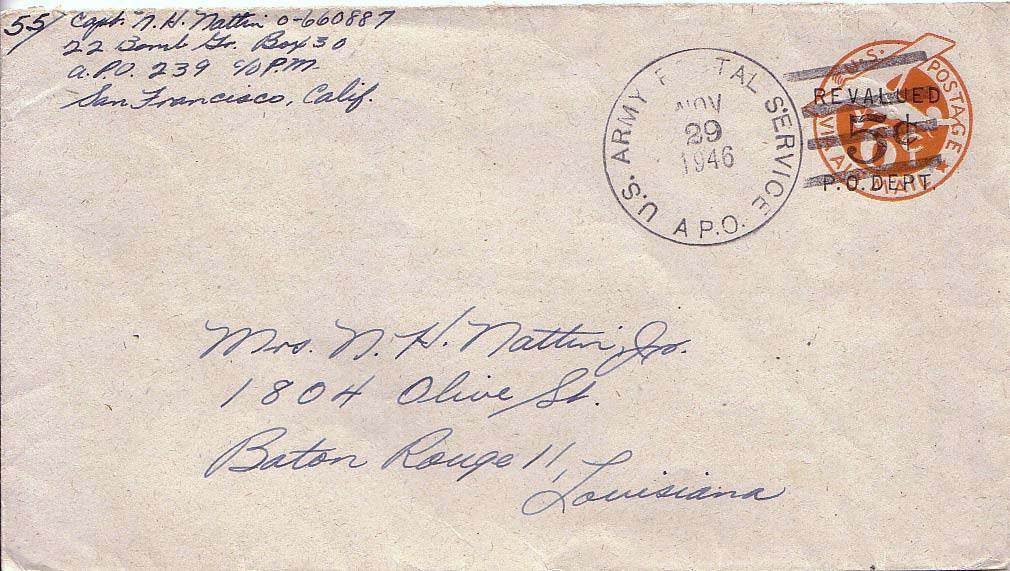 55/ Capt. N. H. Nattin O-660887
22 Bomb Gr. Box 30
A.P.O. 239 c/o P.M.
San Francisco, Calif.
U.S. ARMY POSTAL SERVICE
NOV
29
1946
A.P.O.
U.S. POSTAGE
REVALUED
5¢
P.O. DEPT.
VIA AIR MAIL
Mrs. N. H. Nattin, Jr.
1804 Olive St.
Baton Rouge 11,
Louisiana